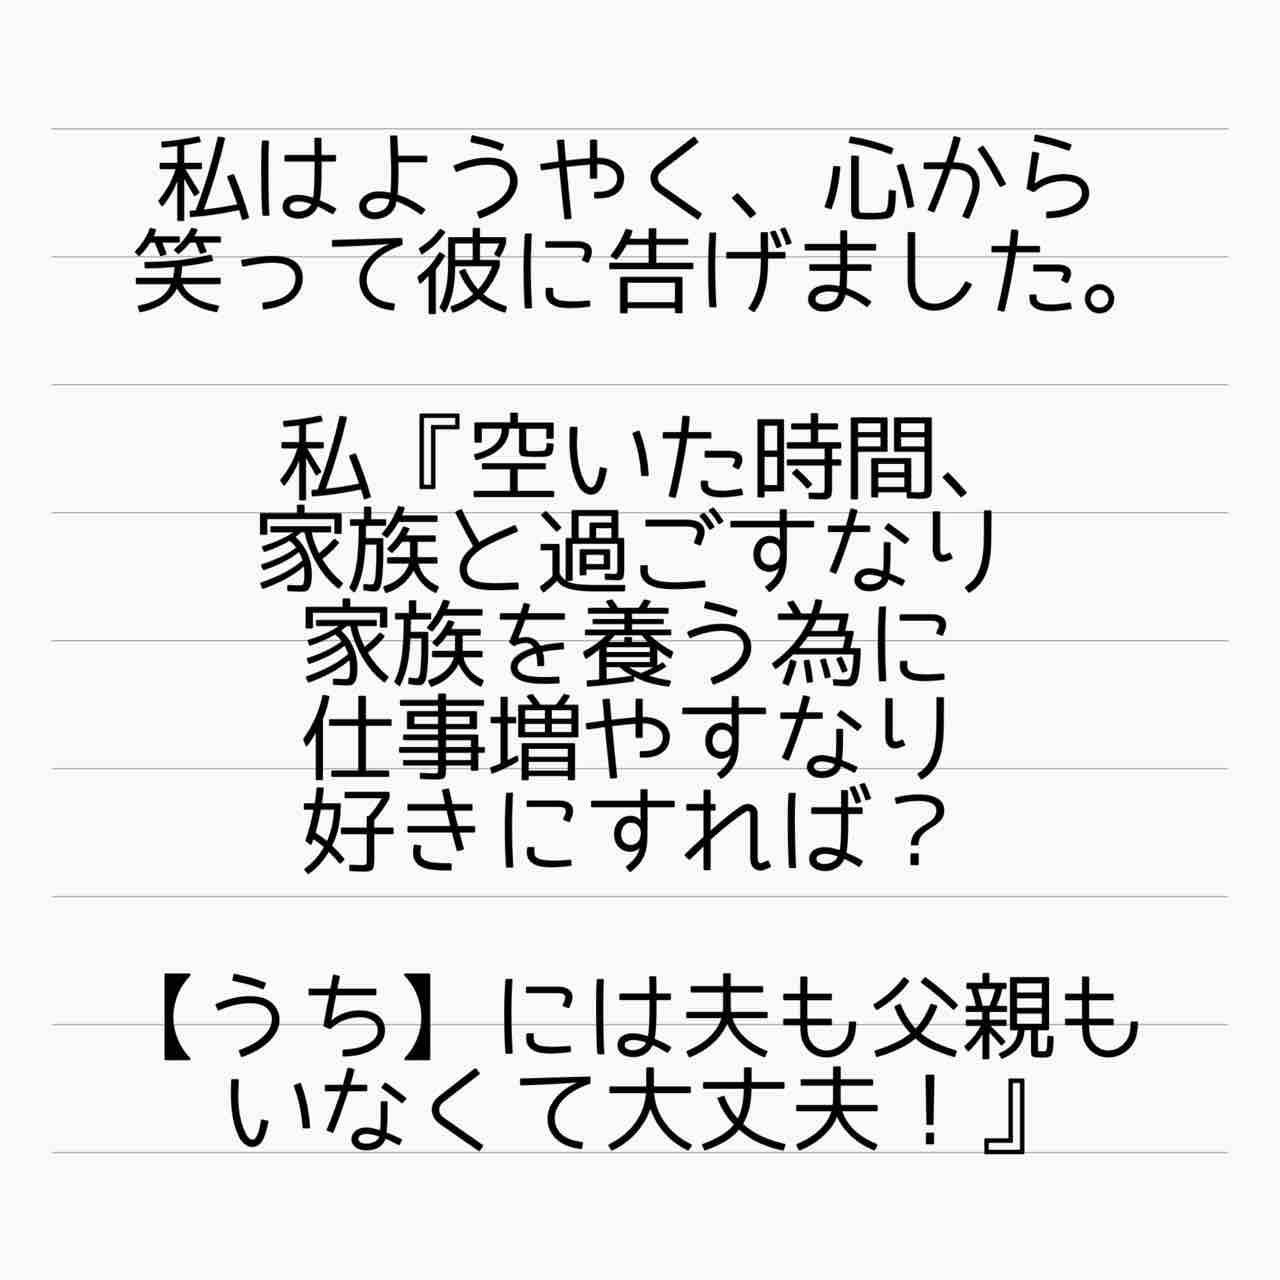 私はようやく、心から
笑って彼に告げました。
私『空いた時間、
家族と過ごすなり
家族を養う為に
仕事増やすなり
好きにすれば？
【うち】には夫も父親も
いなくて大丈夫！』